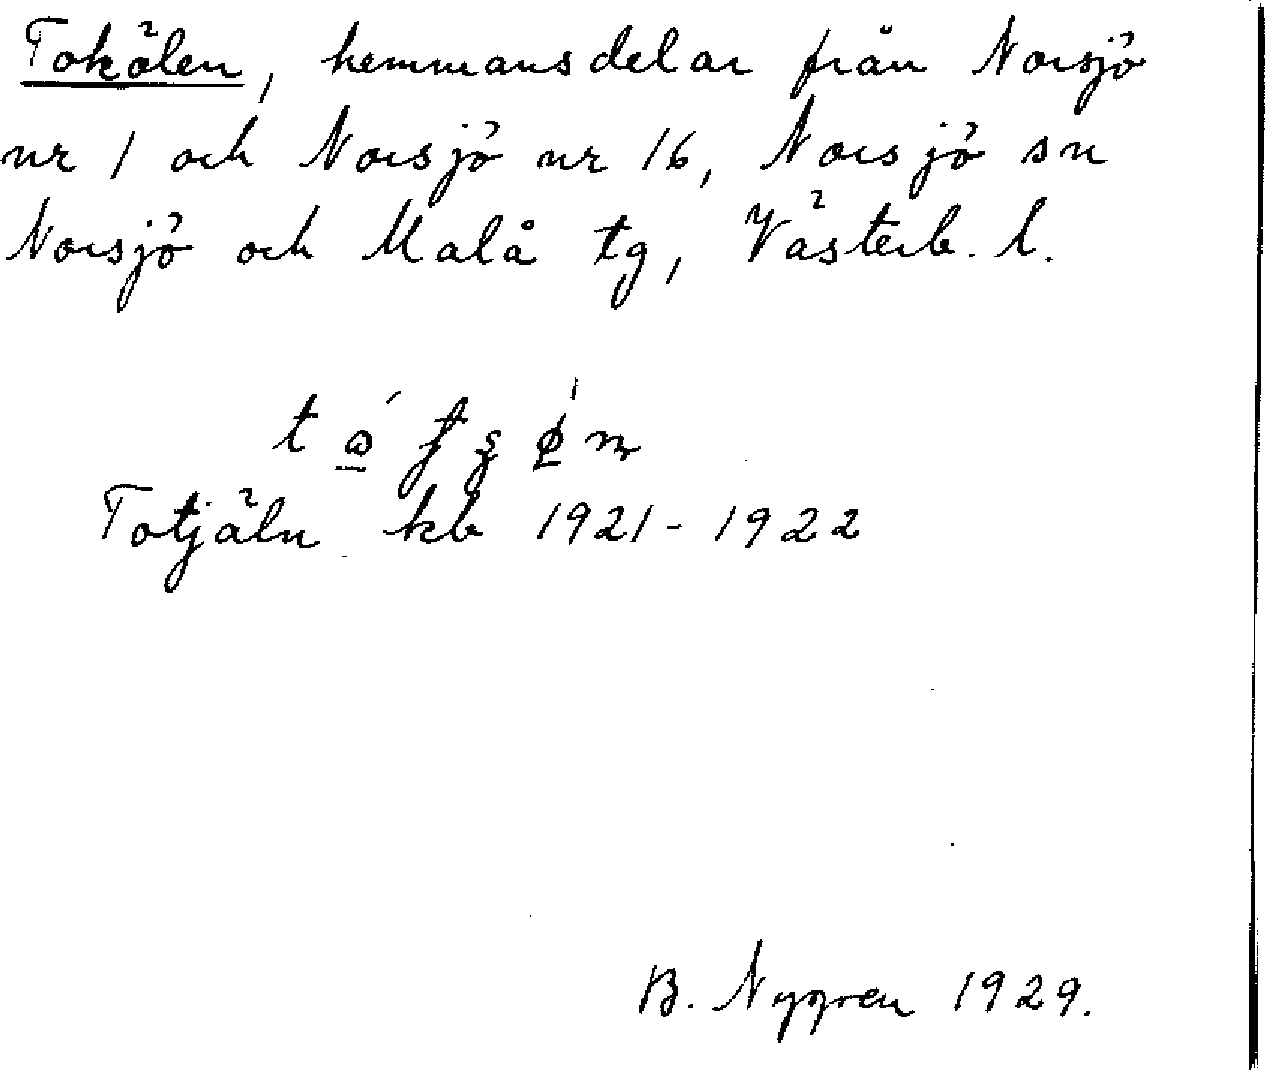 Tokölen, hemmansdelar från Norsjö
nr 1 och Norsjö nr 16, Norsjö sn
Norsjö och Malå tg, Västerb. l.
Totjäln kb 1921-1922
B. Nygren 1929.